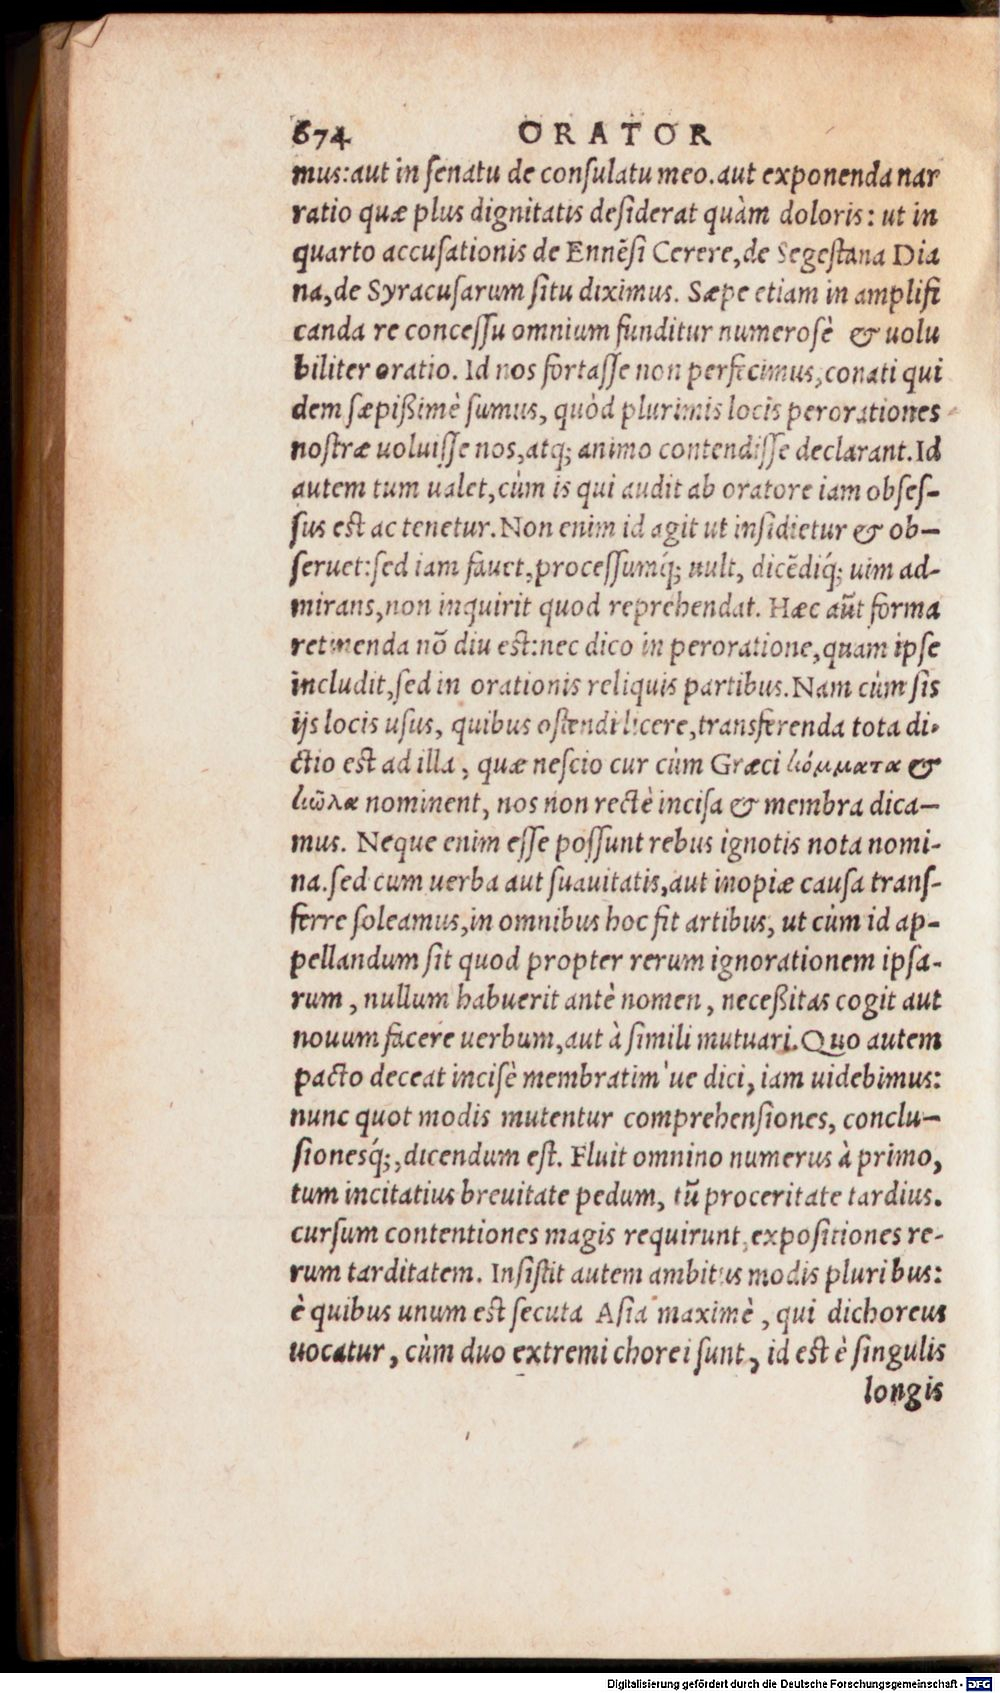 674 ORATOR
mus: aut in senatu de consulatu meo. aut exponenda nar
ratio quæ plus dignitatis desiderat quàm doloris: ut in
quarto accusationis de Ennẽsi Cerere, de Segestana Dia
na, de Syracusarum situ diximus. Sæpe etiam in amplifi
canda re concessu omnium funditur numerosè & uolu
biliter oratio. Id nos fortasse non perfecimus, conati qui
dem sæpißimè sumus, quòd plurimis locis perorationes
nostræ uoluisse nos, atq; animo contendisse declarant. Id
autem tum ualet, cùm is qui audit ab oratore iam obses-
sus est ac tenetur. Non enim id agit ut insidietur & ob-
seruet: sed iam fauet, processumq́; uult, dicẽdiq́; uim ad-
mirans, non inquirit quod reprehendat. Hæc aũt forma
retinenda nõ diu est: nec dico in peroratione, quam ipse
includit, sed in orationis reliquis partibus. Nam cùm sis
ijs locis usus, quibus ostendi licere, transferenda tota di-
ctio est ad illa, quæ nescio cur cùm Græci κόμματα &
κῶλα nominent, nos non rectè incisa & membra dica-
mus. Neque enim esse possunt rebus ignotis nota nomi-
na. sed cum uerba aut suauitatis, aut inopiæ causa trans-
ferre soleamus, in omnibus hoc fit artibus, ut cùm id ap-
pellandum sit quod propter rerum ignorationem ipsa-
rum, nullum habuerit antè nomen, neceßitas cogit aut
nouum facere uerbum, aut à simili mutuari. Quo autem
pacto deceat incisè membratim'ue dici, iam uidebimus:
nunc quot modis mutentur comprehensiones, conclu-
sionesq́;, dicendum est. Fluit omnino numerus à primo,
tum incitatius breuitate pedum, tũ proceritate tardius.
cursum contentiones magis requirunt, expositiones re-
rum tarditatem. Insistit autem ambitus modis pluribus:
è quibus unum est secuta Asia maximè, qui dichoreus
uocatur, cùm duo extremi chorei sunt, id est è singulis
longis
Digitalisierung gefördert durch die Deutsche Forschungsgemeinschaft - DFG